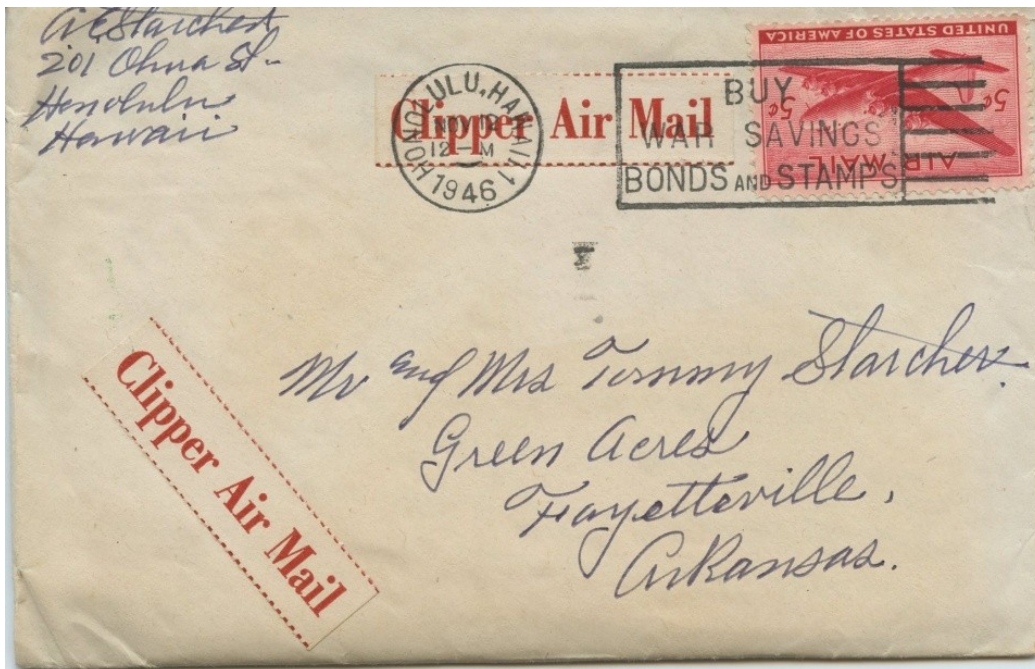 A. E. Starcher
201 Ohua St.
Honolulu
Hawaii
Clipper Air Mail
HONOLULU, HAWAII
NOV
12 - M
1946
BUY
WAR SAVINGS
BONDS AND STAMPS
UNITED STATES OF AMERICA
5¢ 5¢
AIR MAIL
Mr and Mrs Tommy Starcher
Green Acres
Fayetteville,
Arkansas.
Clipper Air Mail